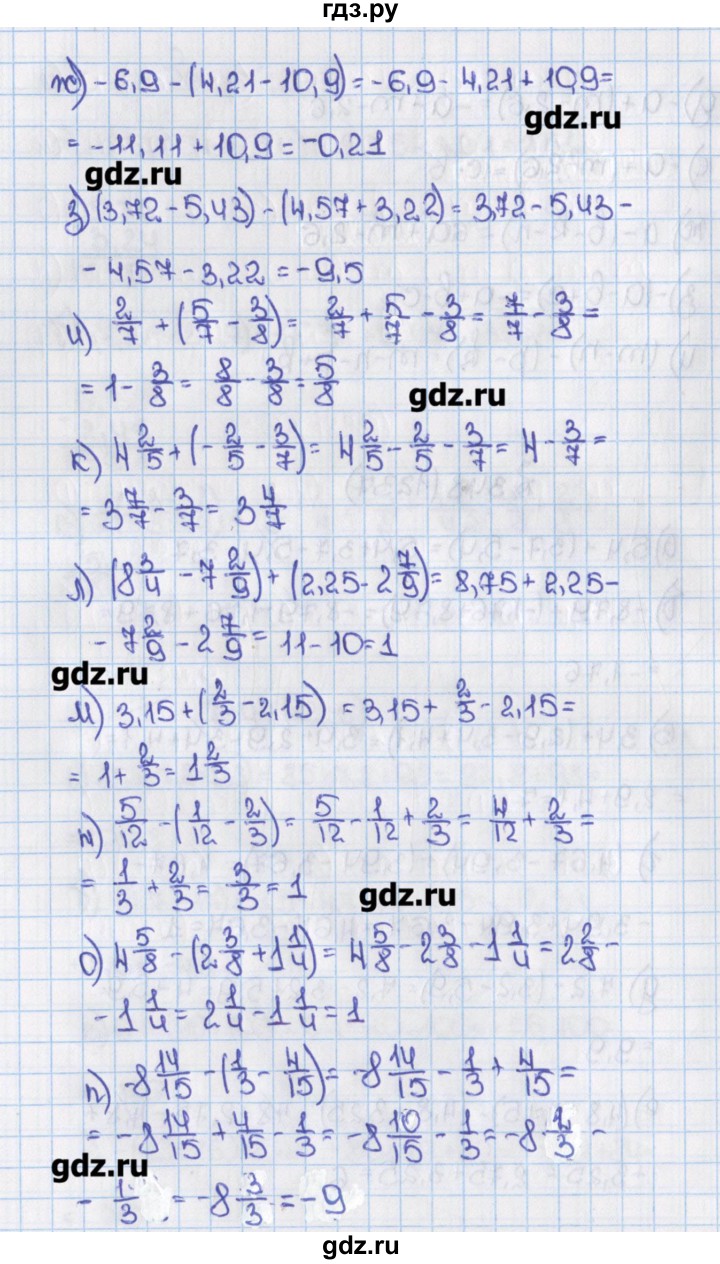 гдз.ру
ж) - 6,9 - (4,21 - 10,9) = -6,9 - 4,21 + 10,9 =
= -11,11 + 10,9 = -0,21
gdz.ru
gdz.ru
з) (3,72 - 5,43) - (4,57 + 3,22) = 3,72 - 5,43 -
- 4,57 - 3,22 = -9,5
и) 2/7 + (5/7 - 3/8) = 2/7 + 5/7 - 3/8 = 7/7 - 3/8 =
= 1 - 3/8 = 8/8 - 3/8 = 5/8
gdz.ru
к) 4 2/5 + (- 2/5 - 3/7) = 4 2/5 - 2/5 - 3/7 = 4 - 3/7 =
= 3 7/7 - 3/7 = 3 4/7
л) (8 3/4 - 7 2/9) + (2,25 - 2 7/9) = 8,75 + 2,25 -
- 7 2/9 - 2 7/9 = 11 - 10 = 1
gdz.ru
м) 3,15 + (2/3 - 2,15) = 3,15 + 2/3 - 2,15 =
= 1 + 2/3 = 1 2/3
н) 5/12 - (1/12 - 2/3) = 5/12 - 1/12 + 2/3 = 4/12 + 2/3 =
= 1/3 + 2/3 = 3/3 = 1
gdz.ru
о) 4 5/8 - (2 3/8 + 1 1/4) = 4 5/8 - 2 3/8 - 1 1/4 = 2 2/8 -
- 1 1/4 = 2 1/4 - 1 1/4 = 1
п) -8 14/15 - (1/3 - 4/15) = -8 14/15 - 1/3 + 4/15 =
= -8 14/15 + 4/15 - 1/3 = -8 10/15 - 1/3 = -8 2/3 -
gdz.ru
- 1/3 = -8 3/3 = -9
gdz.ru